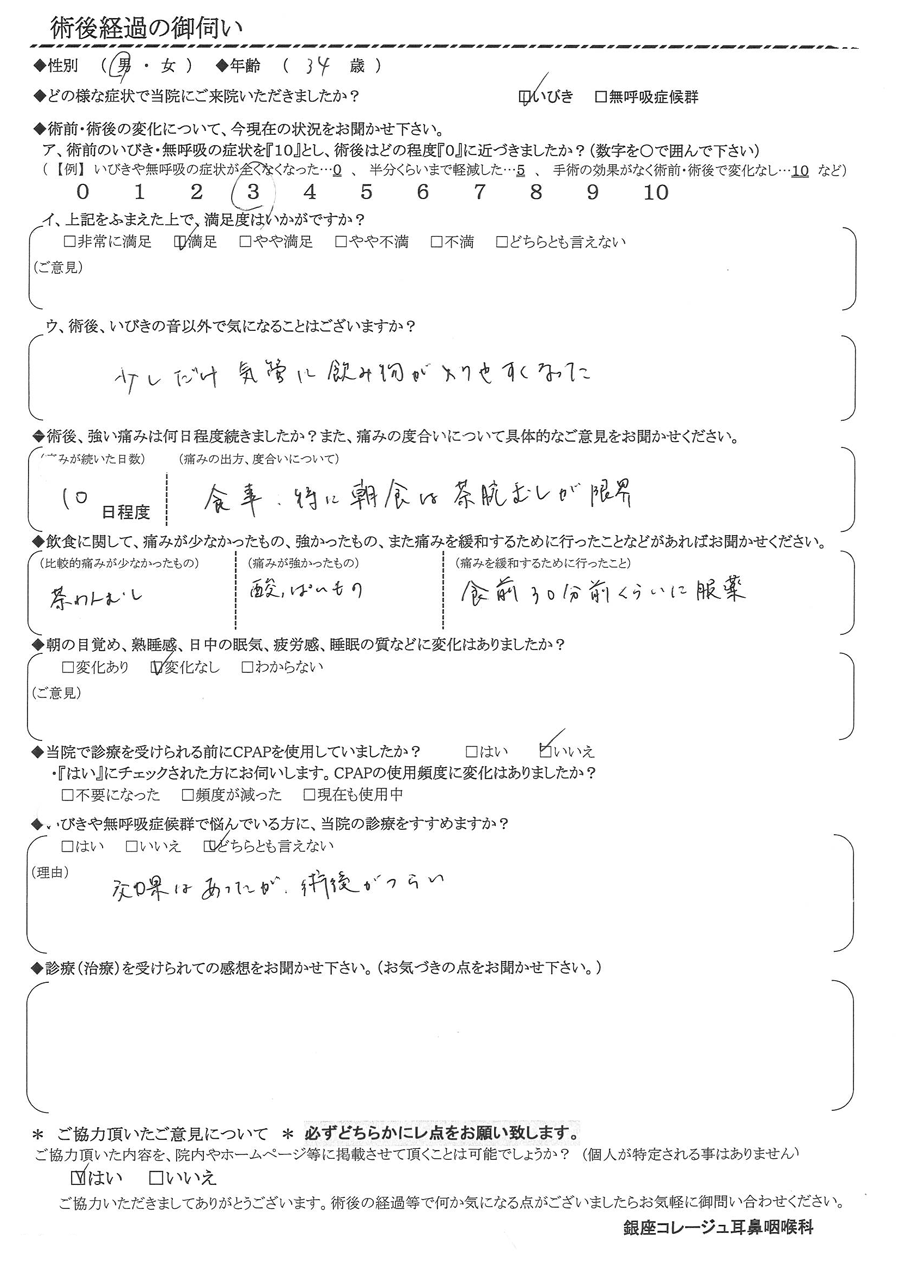 術後経過の御伺い
◆性別 ( 男 ・ 女 ) ◆年齢 ( 34 歳 )
◆どの様な症状で当院にご来院いただきましたか? ☑いびき □無呼吸症候群
◆術前・術後の変化について、今現在の状況をお聞かせ下さい。
ア、術前のいびき・無呼吸の症状を『10』とし、術後はどの程度『0』に近づきましたか?(数字を○で囲んで下さい)
(【例】いびきや無呼吸の症状が全くなくなった…0 、 半分くらいまで軽減した…5 、 手術の効果がなく術前・術後で変化なし…10 など)
0 1 2 3 4 5 6 7 8 9 10
イ、上記をふまえた上で、満足度はいかがですか?
□非常に満足 ☑満足 □やや満足 □やや不満 □不満 □どちらとも言えない
(ご意見)
ウ、術後、いびきの音以外で気になることはございますか?
少しだけ 気管に 飲み物が 入りやすくなった
◆術後、強い痛みは何日程度続きましたか?また、痛みの度合いについて具体的なご意見をお聞かせください。
(痛みが続いた日数) (痛みの出方、度合いについて)
10 日程度 食事、特に朝食は茶腕むしが限界
◆飲食に関して、痛みが少なかったもの、強かったもの、また痛みを緩和するために行ったことなどがあればお聞かせください。
(比較的痛みが少なかったもの) (痛みが強かったもの) (痛みを緩和するために行ったこと)
茶わんむし 酸っぱいもの 食前30分前くらいに服薬
◆朝の目覚め、熟睡感、日中の眠気、疲労感、睡眠の質などに変化はありましたか?
□変化あり ☑変化なし □わからない
(ご意見)
◆当院で診療を受けられる前にCPAPを使用していましたか? □はい ☑いいえ
・『はい』にチェックされた方にお伺いします。CPAPの使用頻度に変化はありましたか?
□不要になった □頻度が減った □現在も使用中
◆いびきや無呼吸症候群で悩んでいる方に、当院の診療をすすめますか?
□はい □いいえ ☑どちらとも言えない
(理由)
効果はあったが、術後がつらい
◆診療(治療)を受けられての感想をお聞かせ下さい。(お気づきの点をお聞かせ下さい。)
＊ ご協力頂いたご意見について ＊ 必ずどちらかにレ点をお願い致します。
ご協力頂いた内容を、院内やホームページ等に掲載させて頂くことは可能でしょうか? (個人が特定される事はありません)
☑はい □いいえ
ご協力いただきましてありがとうございます。術後の経過等で何か気になる点がございましたらお気軽に御問い合わせください。
銀座コレージュ耳鼻咽喉科